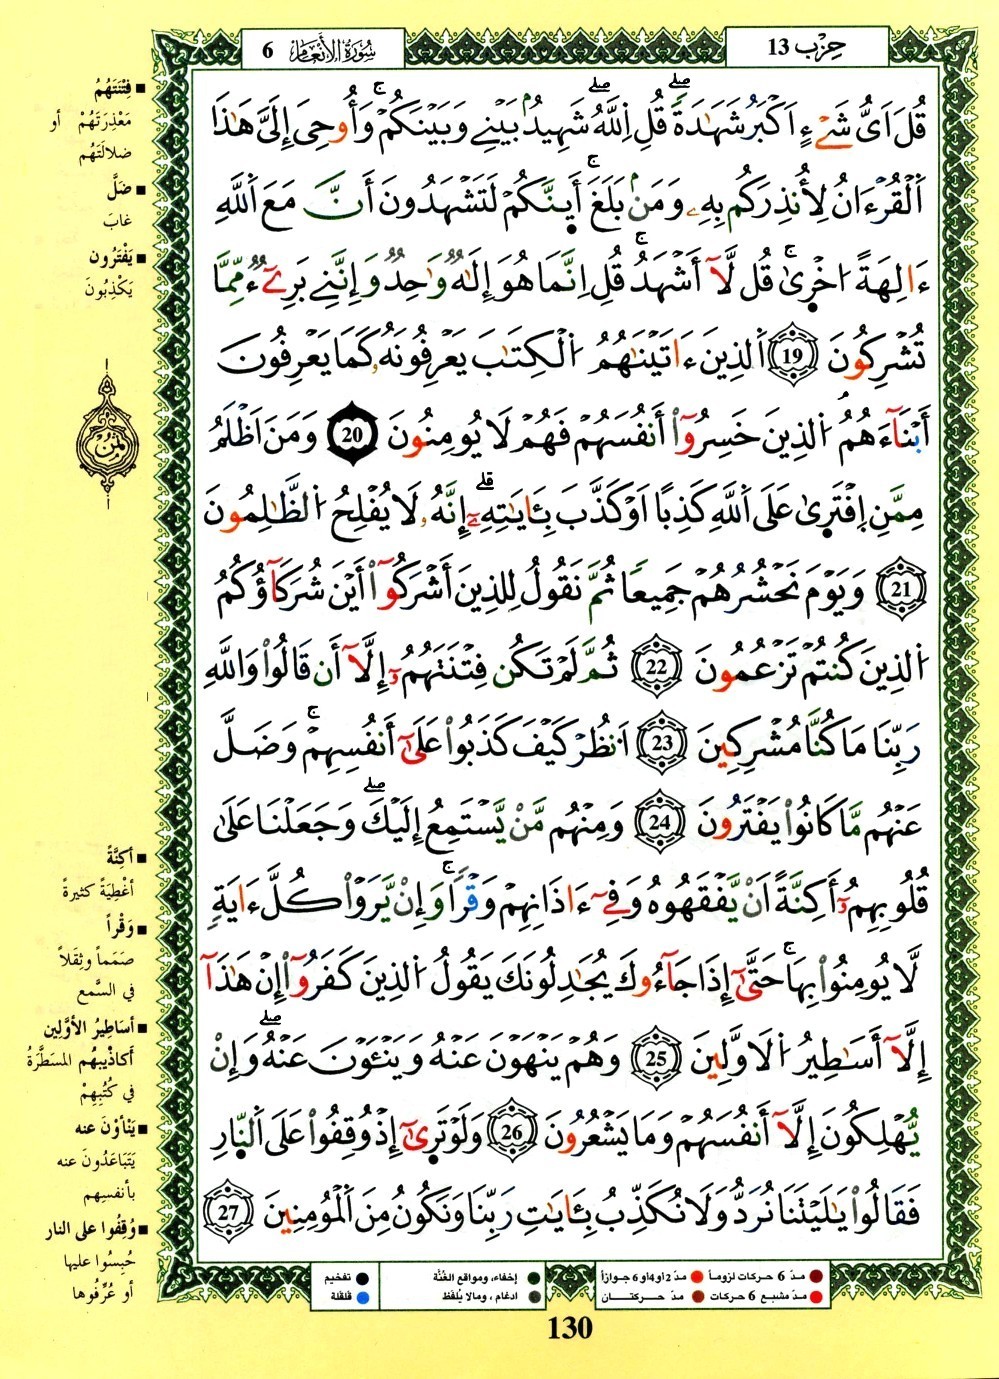 حِزْب 13
سُورَةُ الأَنْعَامِ 6
قُلَ اَيُّ شَےْءٍ اَكْبَرُ شَهَٰدَةٗۖ قُلِ اِ۬للَّهُۖ شَهِيدُۢ بَيْنِے وَبَيْنَكُمْۚ وَأُوحِيَ إِلَيَّ هَٰذَا
اَ۬لْقُرْءَانُ لِأُنذِرَكُم بِهِۦ وَمَنۢ بَلَغَۚ أَئِنَّكُمْ لَتَشْهَدُونَ أَنَّ مَعَ اَ۬للَّهِ
ءَالِهَةً ا۟خْر۪يٰۚ قُل لَّآ أَشْهَدُۚ قُلِ اِنَّمَا هُوَ إِلَٰهٞ وَٰحِدٞ وَإِنَّنِے بَرِےٓءٞ مِّمَّا
تُشْرِكُونَ 19 اَ۬لذِينَ ءَاتَيْنَٰهُمُ اُ۬لْكِتَٰبَ يَعْرِفُونَهُۥ كَمَا يَعْرِفُونَ
أَبْنَآءَهُمُ اُ۬لذِينَ خَسِرُوٓاْ أَنفُسَهُمْ فَهُمْ لَا يُومِنُونَ 20 وَمَنَ اَظْلَمُ
مِمَّنِ اِ۪فْتَر۪يٰ عَلَى اَ۬للَّهِ كَذِباً اَوْ كَذَّبَ بِـَٔايَٰتِهِۦٓۖ إِنَّهُۥ لَا يُفْلِحُ اُ۬لظَّٰلِمُونَ
21 وَيَوْمَ نَحْشُرُهُمْ جَمِيعاٗ ثُمَّ نَقُولُ لِلذِينَ أَشْرَكُوٓاْ أَيْنَ شُرَكَآؤُكُمُ
اُ۬لذِينَ كُنتُمْ تَزْعُمُونَ 22 ثُمَّ لَمْ تَكُن فِتْنَتَهُمُۥٓ إِلَّآ أَن قَالُواْ وَاللَّهِ
رَبِّنَا مَا كُنَّا مُشْرِكِينَ 23 اَ۟نظُرْ كَيْفَ كَذَبُواْ عَلَىٰٓ أَنفُسِهِمْۚ وَضَلَّ
عَنْهُم مَّا كَانُواْ يَفْتَرُونَ 24 وَمِنْهُم مَّنْ يَّسْتَمِعُ إِلَيْكَۖ وَجَعَلْنَا عَلَىٰ
قُلُوبِهِمُۥٓ أَكِنَّةً اَنْ يَّفْقَهُوهُ وَفِےٓ ءَاذَانِهِمْ وَقْراٗۚ وَإِنْ يَّرَوْاْ كُلَّ ءَايَةٖ
لَّا يُومِنُواْ بِهَاۚ حَتَّىٰٓ إِذَا جَآءُوكَ يُجَٰدِلُونَكَ يَقُولُ اُ۬لذِينَ كَفَرُوٓاْ إِنْ هَٰذَآ
إِلَّآ أَسَٰطِيرُ اُ۬لَاوَّلِينَ 25 وَهُمْ يَنْهَوْنَ عَنْهُ وَيَنْـَٔوْنَ عَنْهُۖ وَإِنْ
يُّهْلِكُونَ إِلَّآ أَنفُسَهُمْ وَمَا يَشْعُرُونَ 26 وَلَوْ تَر۪ىٰٓ إِذْ وُقِفُواْ عَلَى اَ۬لنّ۪ارِ
فَقَالُواْ يَٰلَيْتَنَا نُرَدُّ وَلَا نُكَذِّبُ بِـَٔايَٰتِ رَبِّنَا وَنَكُونُ مِنَ اَ۬لْمُومِنِينَ 27
■ فِتْنَتَهُمُ
مَعْذِرَتَهُمْ أو
ضلالَتَهُم
■ ضَلَّ
غابَ
■ يَفْتَرُون
يَكْذِبُونَ
ثُمُن
■ أكِنَّةً
أغْطِيَةً كثيرةً
■ وَقْراً
صَمَماً وثِقَلاً
في السَّمع
■ أساطِيرُ الأوَّلِين
أكاذيبُهم المسَطَّرَةُ
في كُتُبِهِمْ
■ يَنْأوْنَ عنه
يَتَبَاعَدُونَ عنه
بأنفسِهِم
■ وُقِفُوا على النار
حُبِسُوا عليها
أو عُرِّفُوها
● مدّ 6 حركات لزوماً ● مدّ 2 أو 4 أو 6 جوازاً
● مدّ مشبع 6 حركات ● مدّ حركتان
● إخفاء، ومواقع الغُنَّة ● تفخيم
● ادغام، ومالا يُلفَظ ● قلقلة
130